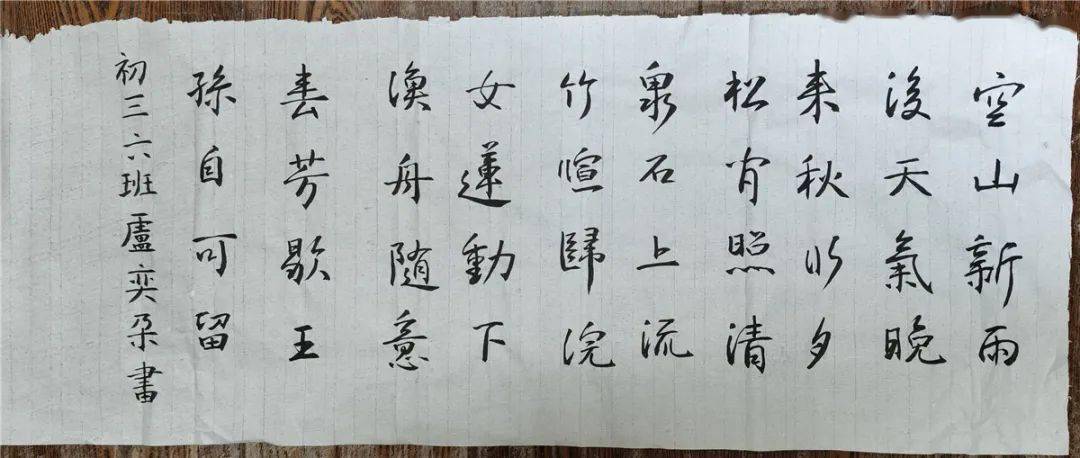 空山新雨
後天氣晚
来秋明月
松间照清
泉石上流
竹喧歸浣
女蓮動下
漁舟隨意
春芳歇王
孫自可留
初三六班盧奕朵書